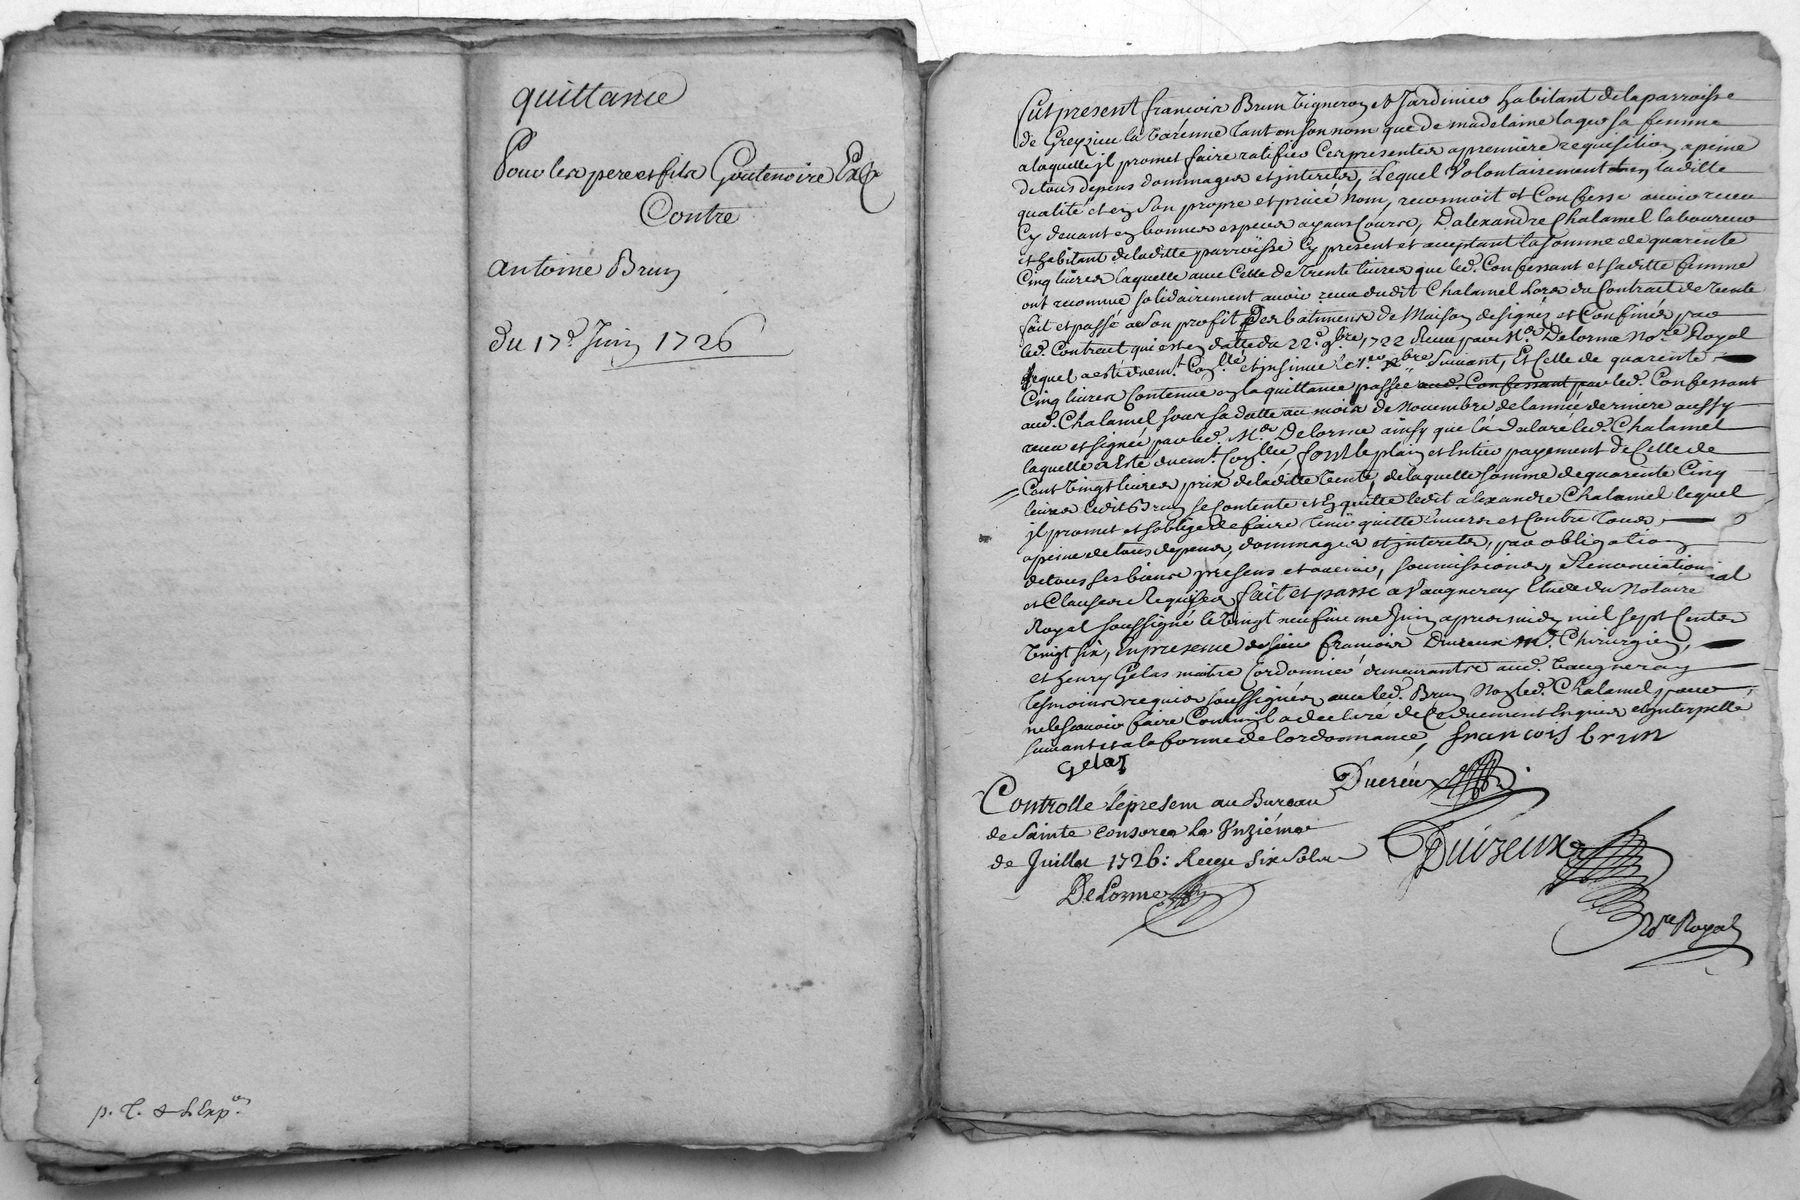 quittance
Pour les pere et fils Goutenoire
Contre
antoine Brun
du 17e Juin 1726
Fut present françois Brun Vigneron et Jardinier habitant de la parroisse
de Greyzieu la Varenne tant en son nom que de madelaine sa femme
a laquelle jl promet faire ratifier ces presentes a premiere requisition a peine
de tous depens dommages et jnterets, Lequel Volontairement en laditte
qualité et en son propre et privé nom, reconnoit et Confesse avoir receu
Cy devant en bonnes especes ayans cours, D'alexandre Chalamel laboureur
et habitant de laditte parroisse Cy present et acceptant la somme de quarente
Cinq livres laquelle avec Celle de trente livres que led. Confessant et saditte femme
ont reconnue solidairement avoir receu dudit Chalamel Lors du Contract de vente
fait et passé a son profit Des batimens de Maison designés et Confinés par
led. Contract qui est en datte du 22e 9bre 1722 Receu par Me Delorme Nore Royal
Lequel a esté duemt et jnsinué suivant, Et Celle de quarente
Cinq livres Contenue en la quittance passée aud. Confessant par led. Confessant
aud. Chalamel sous sa datte au mois de Novembre de l'année derniere aussy
receu et signée par led. Me Delorme ainsy que l'a declaré led. Chalamel
laquelle a Esté duemt font le plain et Entier payement de Celle de
Cent Vingt livres prix de laditte vente, de laquelle somme de quarente Cinq
livres ledit Brun se Contente et En quitte ledit alexandre Chalamel lequel
jl promet et s'oblige de faire tenir quitte Envers et Contre tous
a peine de tous depens, dommages et jnterets, par obligation
de tous ses biens presens et avenir, soumissions, Renonciations
et Clauses Requises fait et passé a Vaugneray Etude du Notaire
Royal soussigné le Vingt neufieme Juin apres midy mil sept Cents
Vingt six, En presence de sieur françois Ducreux Me Chirurgien,
et henry Gelas maitre Cordonnier demeurants aud. Vaugneray
tesmoins requis soussignés avec led. Brun Non led. Chalamel pour
ne le sçavoir faire Comm'jl a declaré de Ce duement Enquis et jnterpellé
suivant et a la forme de l'ordonnance, francois brun
Gelas
Ducreux
Controllé le present au Bureau
de Sainte Consorce Le Unziéme
de Juillet 1726: Receu Six Sols
DeLorme
Ducreux
Nre Royal